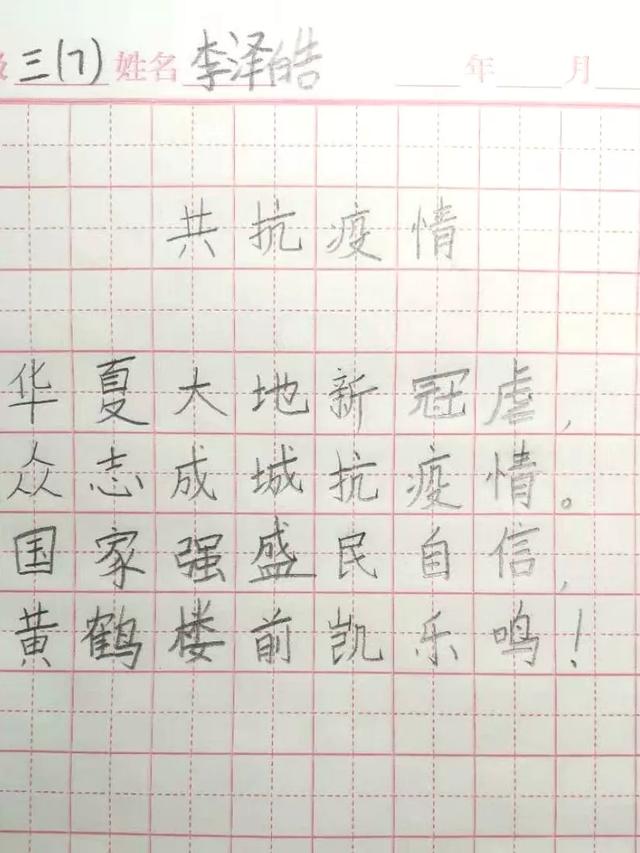 三(7) 姓名 李泽皓 年 月
共抗疫情
华夏大地新冠虐,
众志成城抗疫情。
国家强盛民自信,
黄鹤楼前凯乐鸣!